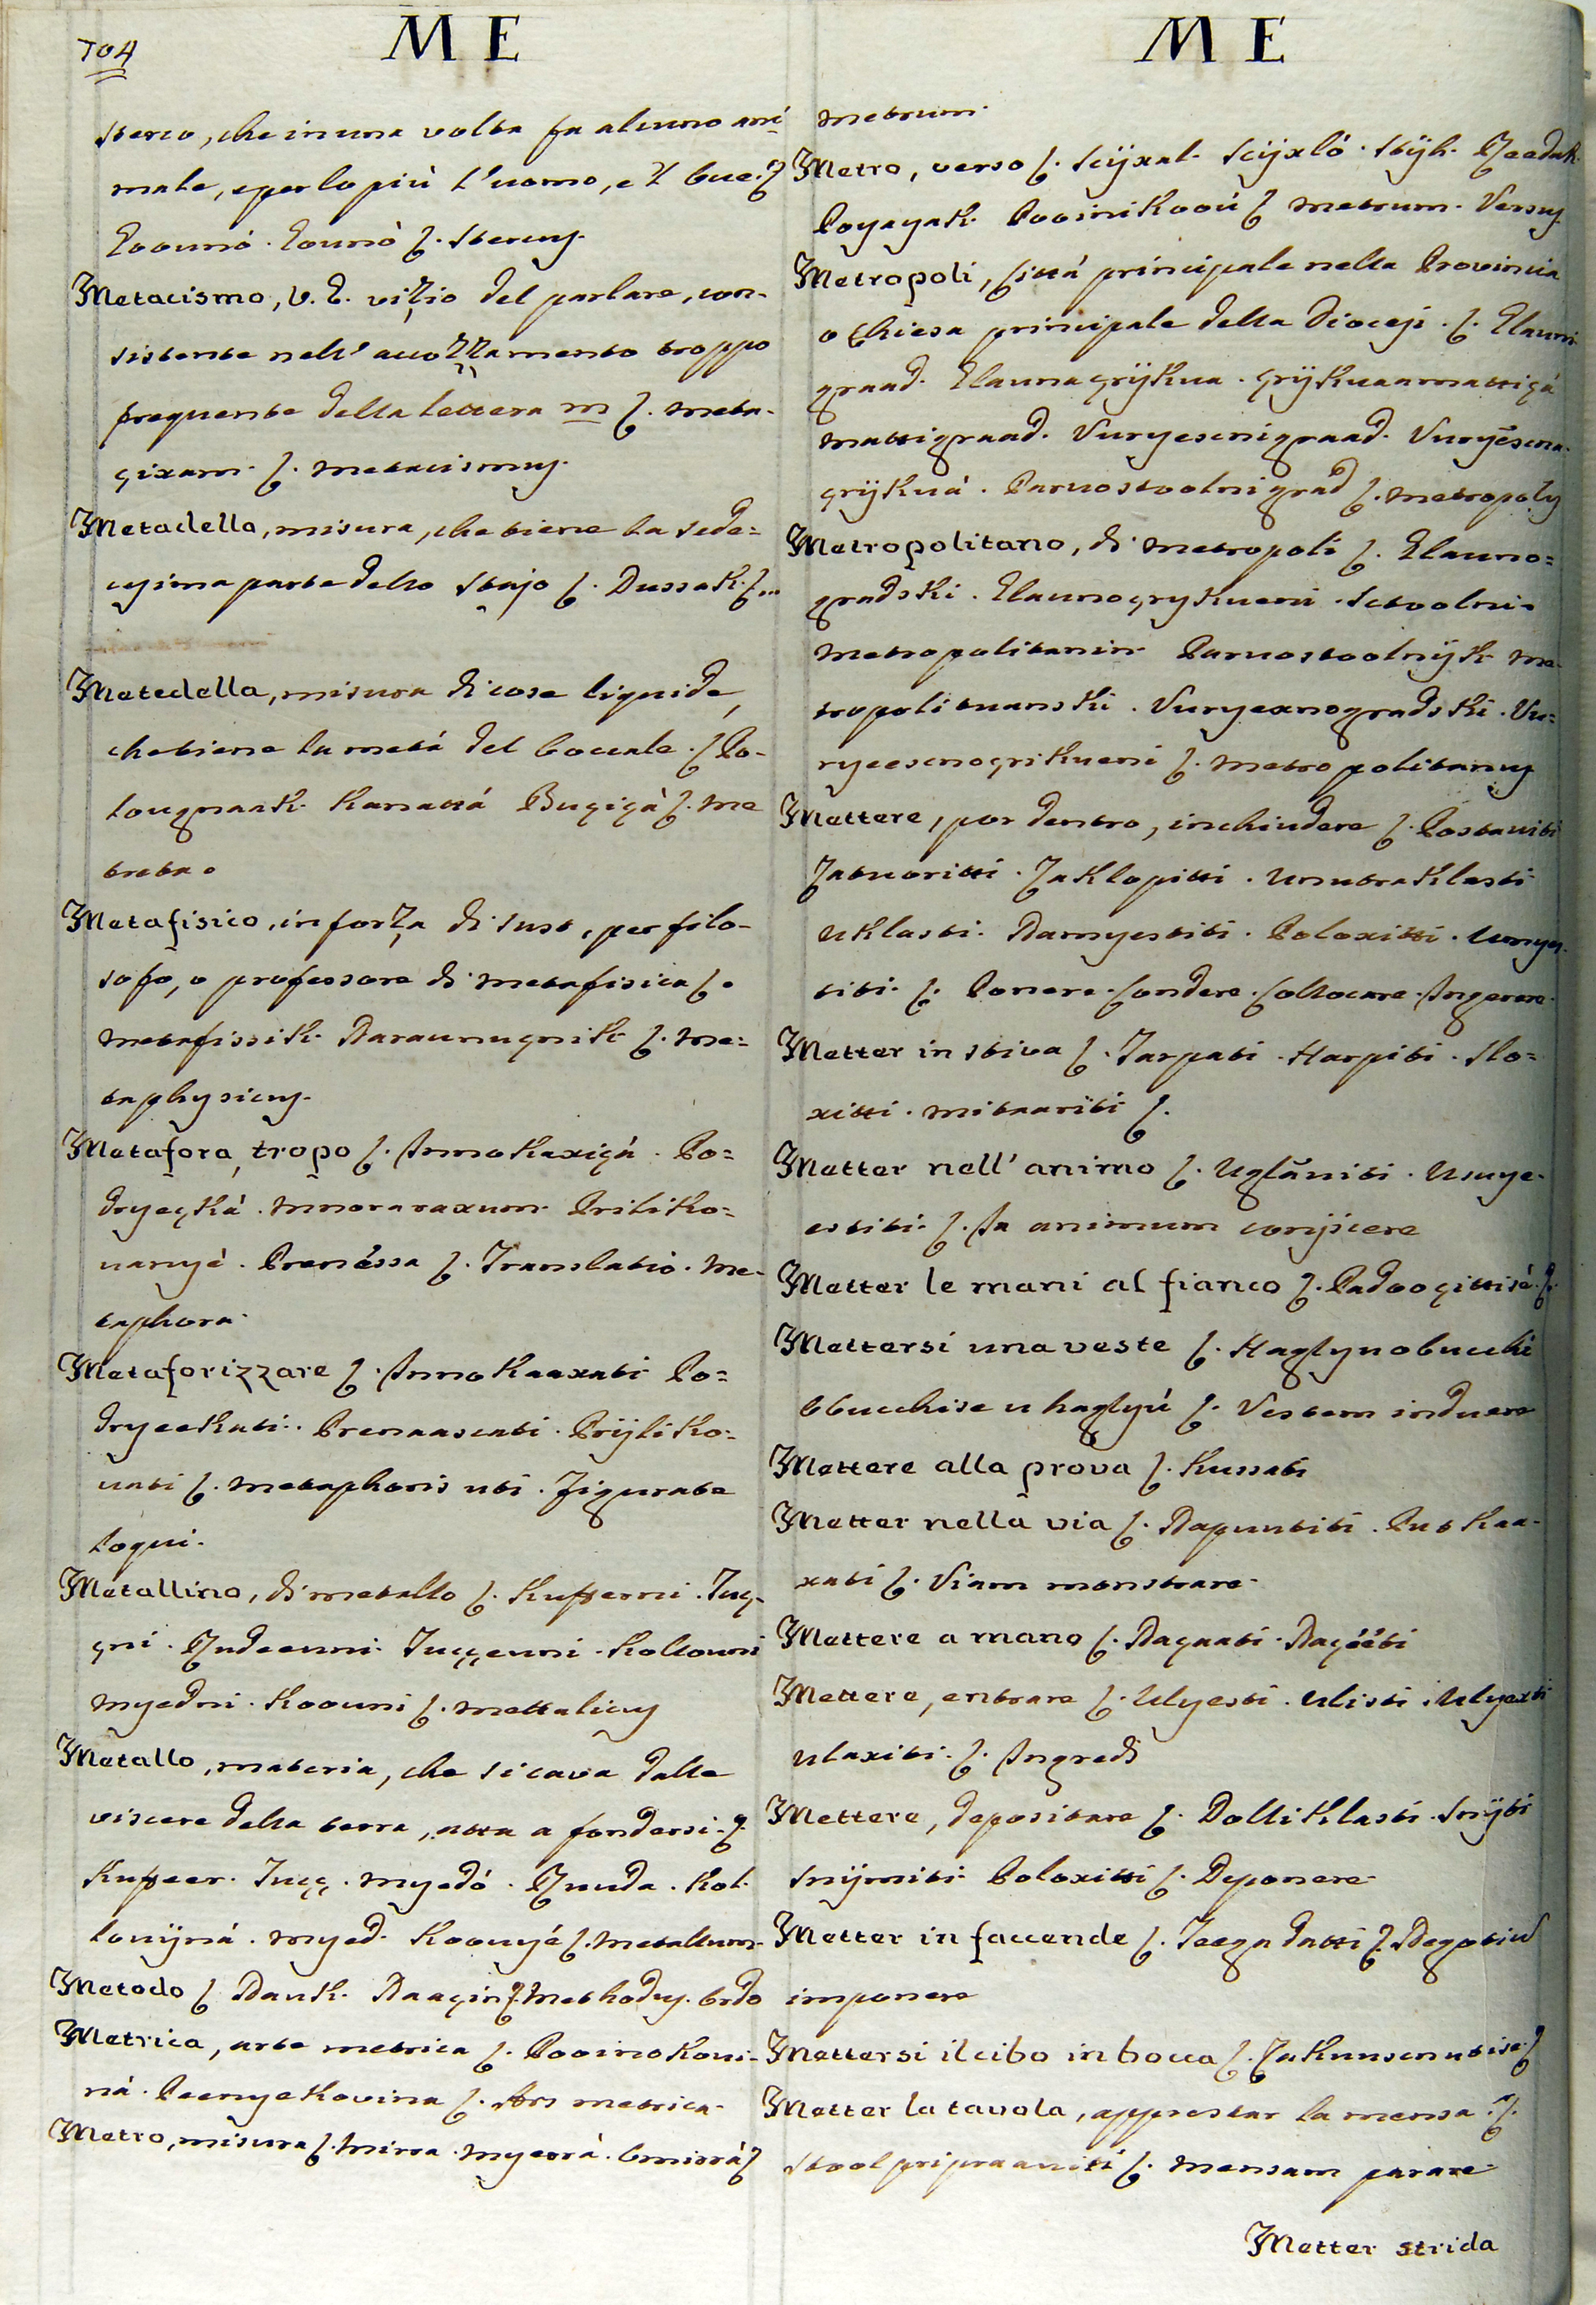 704
M E
sterco, che in una volta fa alcuno ani
male, e per lo più l'uomo, e 'l bue.
Metacismo, V. L. vizio del parlare, con-
sistente nell' accozzamento troppo
frequente della lettera m ſ. meta-
çixam. ſ. metacismus.
Metadella, misura, che tiene la sede=
cesima parte dello stajo ſ. Dussak. ſ...
Metedella, misura di cose liquide,
che tiene la metà del boccale. ſ Po-
lougnaak. Kanattá Bugiçà ſ. me
treta.
Metafisico, in forza di sust, per filo-
sofo, o professore di metafisica ſ.
metafissik. Naraunugnik ſ. me=
taphysicus.
Metafora, tropo ſ. Innokaxiçá. Po=
dryeçká. Priliko=
vanyé. Prenéssa ſ. Translatio. Me-
taphora.
Metaforizzare ſ. Innokaaxati Po=
dryeekati. Prenaascati. Prijliko=
vati ſ. metaphoris uti. Figurate
loqui.
Metallino, di metallo ſ. Kufferni. Tuç-
çni. Rudeenni. Tuççenni. Kollouni
myedni. Koouni ſ. mettalicus
Metallo, materia, che si cava dalle
viscere della terra, atta a fondersi. ſ
Kuffeer. Tuçç. myedó. Ruuda. Kol-
louijná. myed. Koouyé ſ. metallum.
Metodo ſ Nauk. Naaçin ſ. Methodus. Ordo
Metrica, arte metrica ſ. Pooinokoui-
ná. Peenyekovina ſ. Ars metrica.
Metro, misura ſ. Mirra. myerrá. Omirrá ſ
M E
metrum.
Metro, verso ſ. Scijxal. Scijxló. Stijh. Reedak.
metrum. Versus
Metropoli, Città principale nella Provincia
o Chiesa principale della Diocesi. ſ. Glauni
graad. Glauna çrijkua. çrijkuaamattiçá
mattigraad. Vuryescnigraad. Vuryéscna-
çrijkuá. Paruostoolnigrad ſ. metropolis
Metropolitano, di metropoli ſ. Glauno=
gradski. Glaunoçrykueni. Sctoolni.
metropolitanin. Paruostoolnijk. me-
tropolituanski. Vuryexnogradski. Vu=
ryeescnoçrikueni ſ. metropolitanus
Mettere, por dentro, inchiudere ſ. Postaviti
Zatuoritti. Zaklopitti. Unutraklasti
Uklasti. Namyestiti. Poloxitti. Umyes-
titi. ſ. Ponere. Condere. Collocare. Ingerere.
Metter in stiva ſ. Tarpati. Harpiti. Slo=
xitti. mitaariti ſ.
Metter nell' animo ſ. Uglāuiti. Usuye-
estiti. ſ. In animum conijcere
Metter le mani al fianco ſ. Padooçittisé. ſ.
Mettersi una veste ſ. Haglynobucchi
Obucchise u haglyú ſ. Vestem induere
Mettere alla prova ſ. Kussati
Metter nella via ſ. Naputiti. Putkaa-
xati ſ. Viam monstrare.
Mettere a mano ſ. Naçaati. Naçééti
Mettere, entrare ſ. Ulyesti. Ulisti. Ulyexti
Ulaxiti. ſ. Ingredi
Mettere, depositare ſ. Dolliklasti. Snijti
Snijmiti. Poloxitti ſ. Deponere.
Metter in faccende ſ. Teega datti ſ. Negotiu
imponere
Mettersi il cibo in bocca ſ. Zakuuscnutise ſ
Metter la tavola, apprestar la mensa. ſ.
Stool pripraaviti ſ. mensam parare.
Metter strida